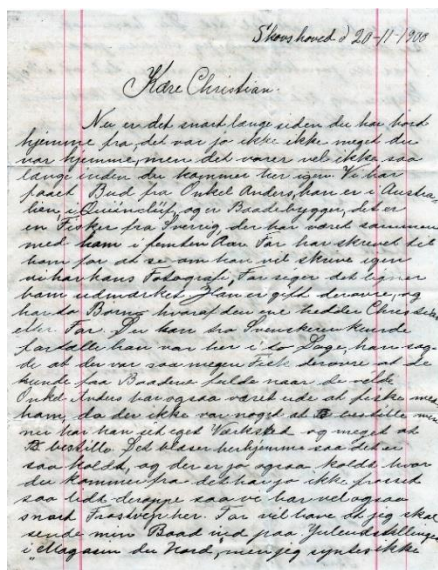 Skovshoved d 20-11-1900
Kære Christian.
Nu er det snart længe siden du har hørt
hjemme fra, det var jo ikke ikke meget du
var hjemme, men det varer vel ikke saa
længe inden du kommer her igen. Vi har
faaet Bud fra Onkel Anders, han er i Austra-
lien, i og er Baadebygger, det er
en Fisker fra Sverrig, der har været sammen
med ham i femten Aar Far har skrevet til
ham for at se om han vil skrive igen
vi har hans Fotografi, Far siger det ligner
ham udmærket Han er gift derovre, og
har to Børn hvoraf den ene hedder
efter Far. Der kan tro Svenskeren kunde
fortælle, han var her i to Dage, han sag-
de at der var saa megen Fisk derovre at de
kunde faa Baadene fulde naar de vilde
Onkel Anders har ogsaa været ude at fiske med
ham, da der ikke var noget at B bestille men
nu har han sit eget Værksted og meget at
B bestille. Det blæser herhjemme saa det er
saa koldt, og der er jo ogsaa koldt hvor
du kommer fra det har jo ikke frosset
saa lidt deroppe saa vi har vel ogsaa
snart Frostvejr her. Far vil have at jeg skal
sende min Baad ind paa Juleudstillingen
i "Magasin du Nord", men jeg syntes ikke